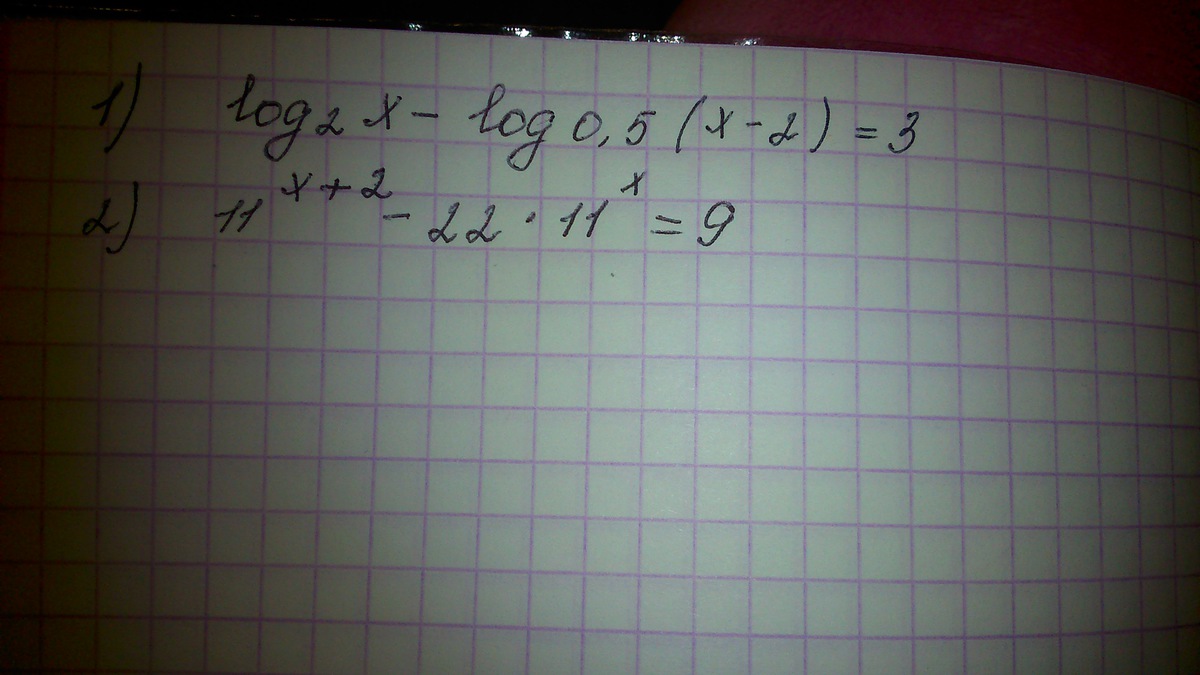 1) log₂ x - log 0,5 (x-2) = 3
2) 11^(x+2) - 22 · 11^x = 9